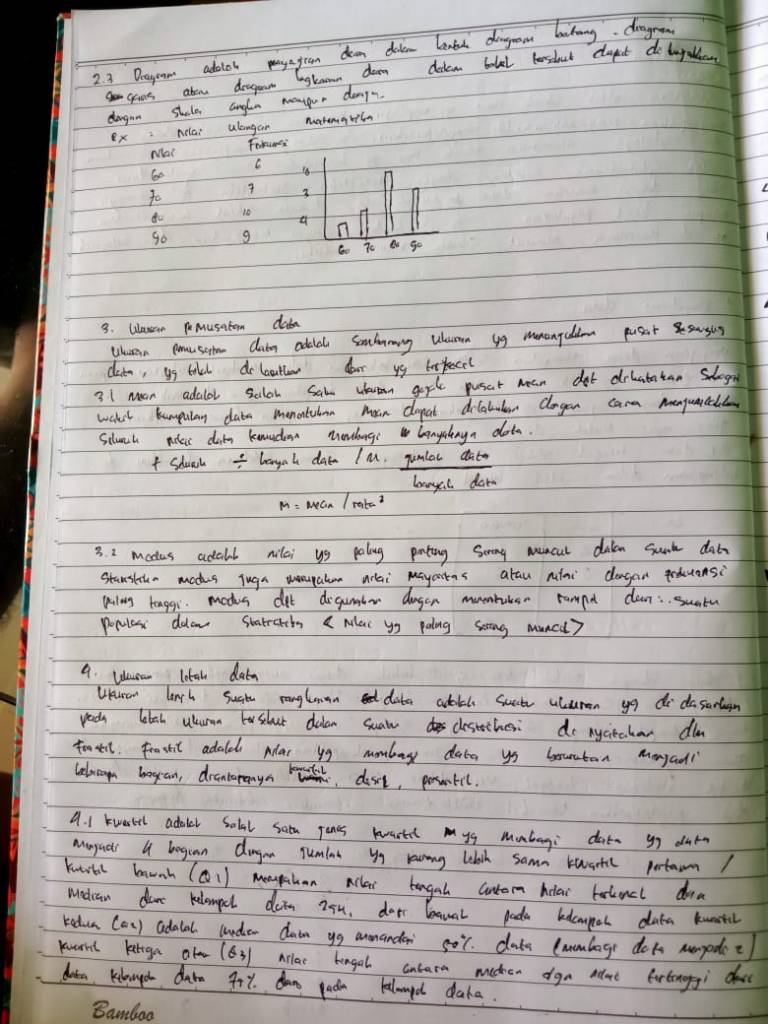 2.3 Diagram adalah penyajian data dalam bentuk diagram batang. diagram
garis atau diagram lingkaran dan dalam tabel tersebut dapat di
dengan skala angka maupun
ex : Nilai ulangan matematika
Nilai Frekuensi
60 6
70 7
80 10
90 9
10
4
60 70 80 90
3. Ukuran Pemusatan data
Ukuran pemusatan data adalah sembarang ukuran yg menunjukkan pusat
data, yg telah di dari yg terkecil
3.1 Mean adalah salah satu ukuran pusat mean dpt dikatakan sebagai
wakil kumpulan data menentukan mean dapat dilakukan dengan cara
seluruh nilai data kemudian membagi banyaknya data.
÷ banyak data / M. jumlah data
banyak data
M = Mean / rata²
3.2 Modus adalah nilai yg paling penting sering muncul dalam suatu data
Statistika modus juga merupakan nilai mayoritas atau nilai dengan frekuensi
paling tinggi. modus dpt digunakan dengan menentukan dari suatu
populasi dalam < Nilai yg paling sering muncul >
4. Ukuran letak data
Ukuran letak suatu rangkaian data adalah suatu ukuran yg di dasarkan
pada letak ukuran tersebut dalam suatu di nyatakan dlm
Fraktil. Fraktil adalah nilai yg membagi data yg berurutan menjadi
beberapa bagian, diantaranya kwartil, desil, persentil.
4.1 kwartil adalah salah satu jenis kwartil yg membagi data yg data
menjadi 4 bagian dengan jumlah yg kurang lebih sama kwartil pertama /
kwartil bawah (Q1) merupakan nilai tengah antara nilai terkecil dan
median dari kelompok data 25%, dari bawah pada kelompok data kwartil
kedua (Q2) adalah median data yg menandai 50% data (membagi data menjadi 2)
kwartil ketiga atau (Q3) nilai tengah antara median dgn nilai tertinggi dari
data kelompok data 75% dari pada kelompok data.
Bamboo